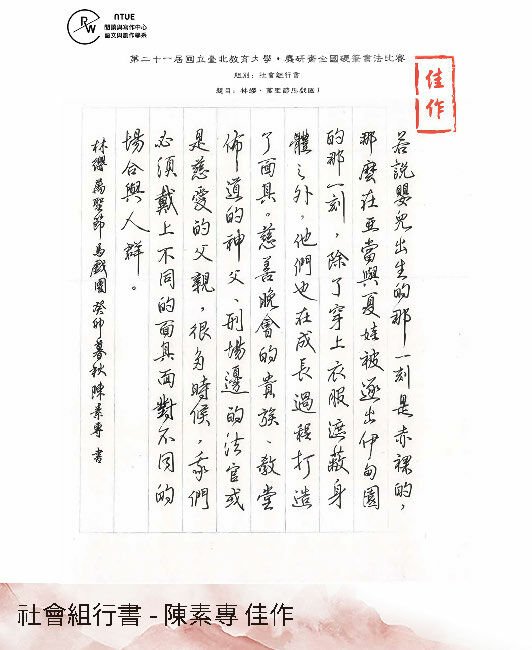 RW
NTUE
閱讀與寫作中心
語文與創作學系
第二十一屆國立臺北教育大學・麋研齋全國硬筆書法比賽
組別：社會組行書
題目：林纓・萬聖節馬戲團1
佳作
若說嬰兒出生的那一刻是赤裸的，
那麼在亞當與夏娃被逐出伊甸園
的那一刻，除了穿上衣服遮蔽身
體之外，他們也在成長過程打造
了面具。慈善晚會的貴族、教堂
佈道的神父、刑場邊的法官或
是慈愛的父親，很多時候，我們
必須戴上不同的面具面對不同的
場合與人群。
林纓萬聖節馬戲團 癸卯暮秋 陳素專書
社會組行書 - 陳素專 佳作